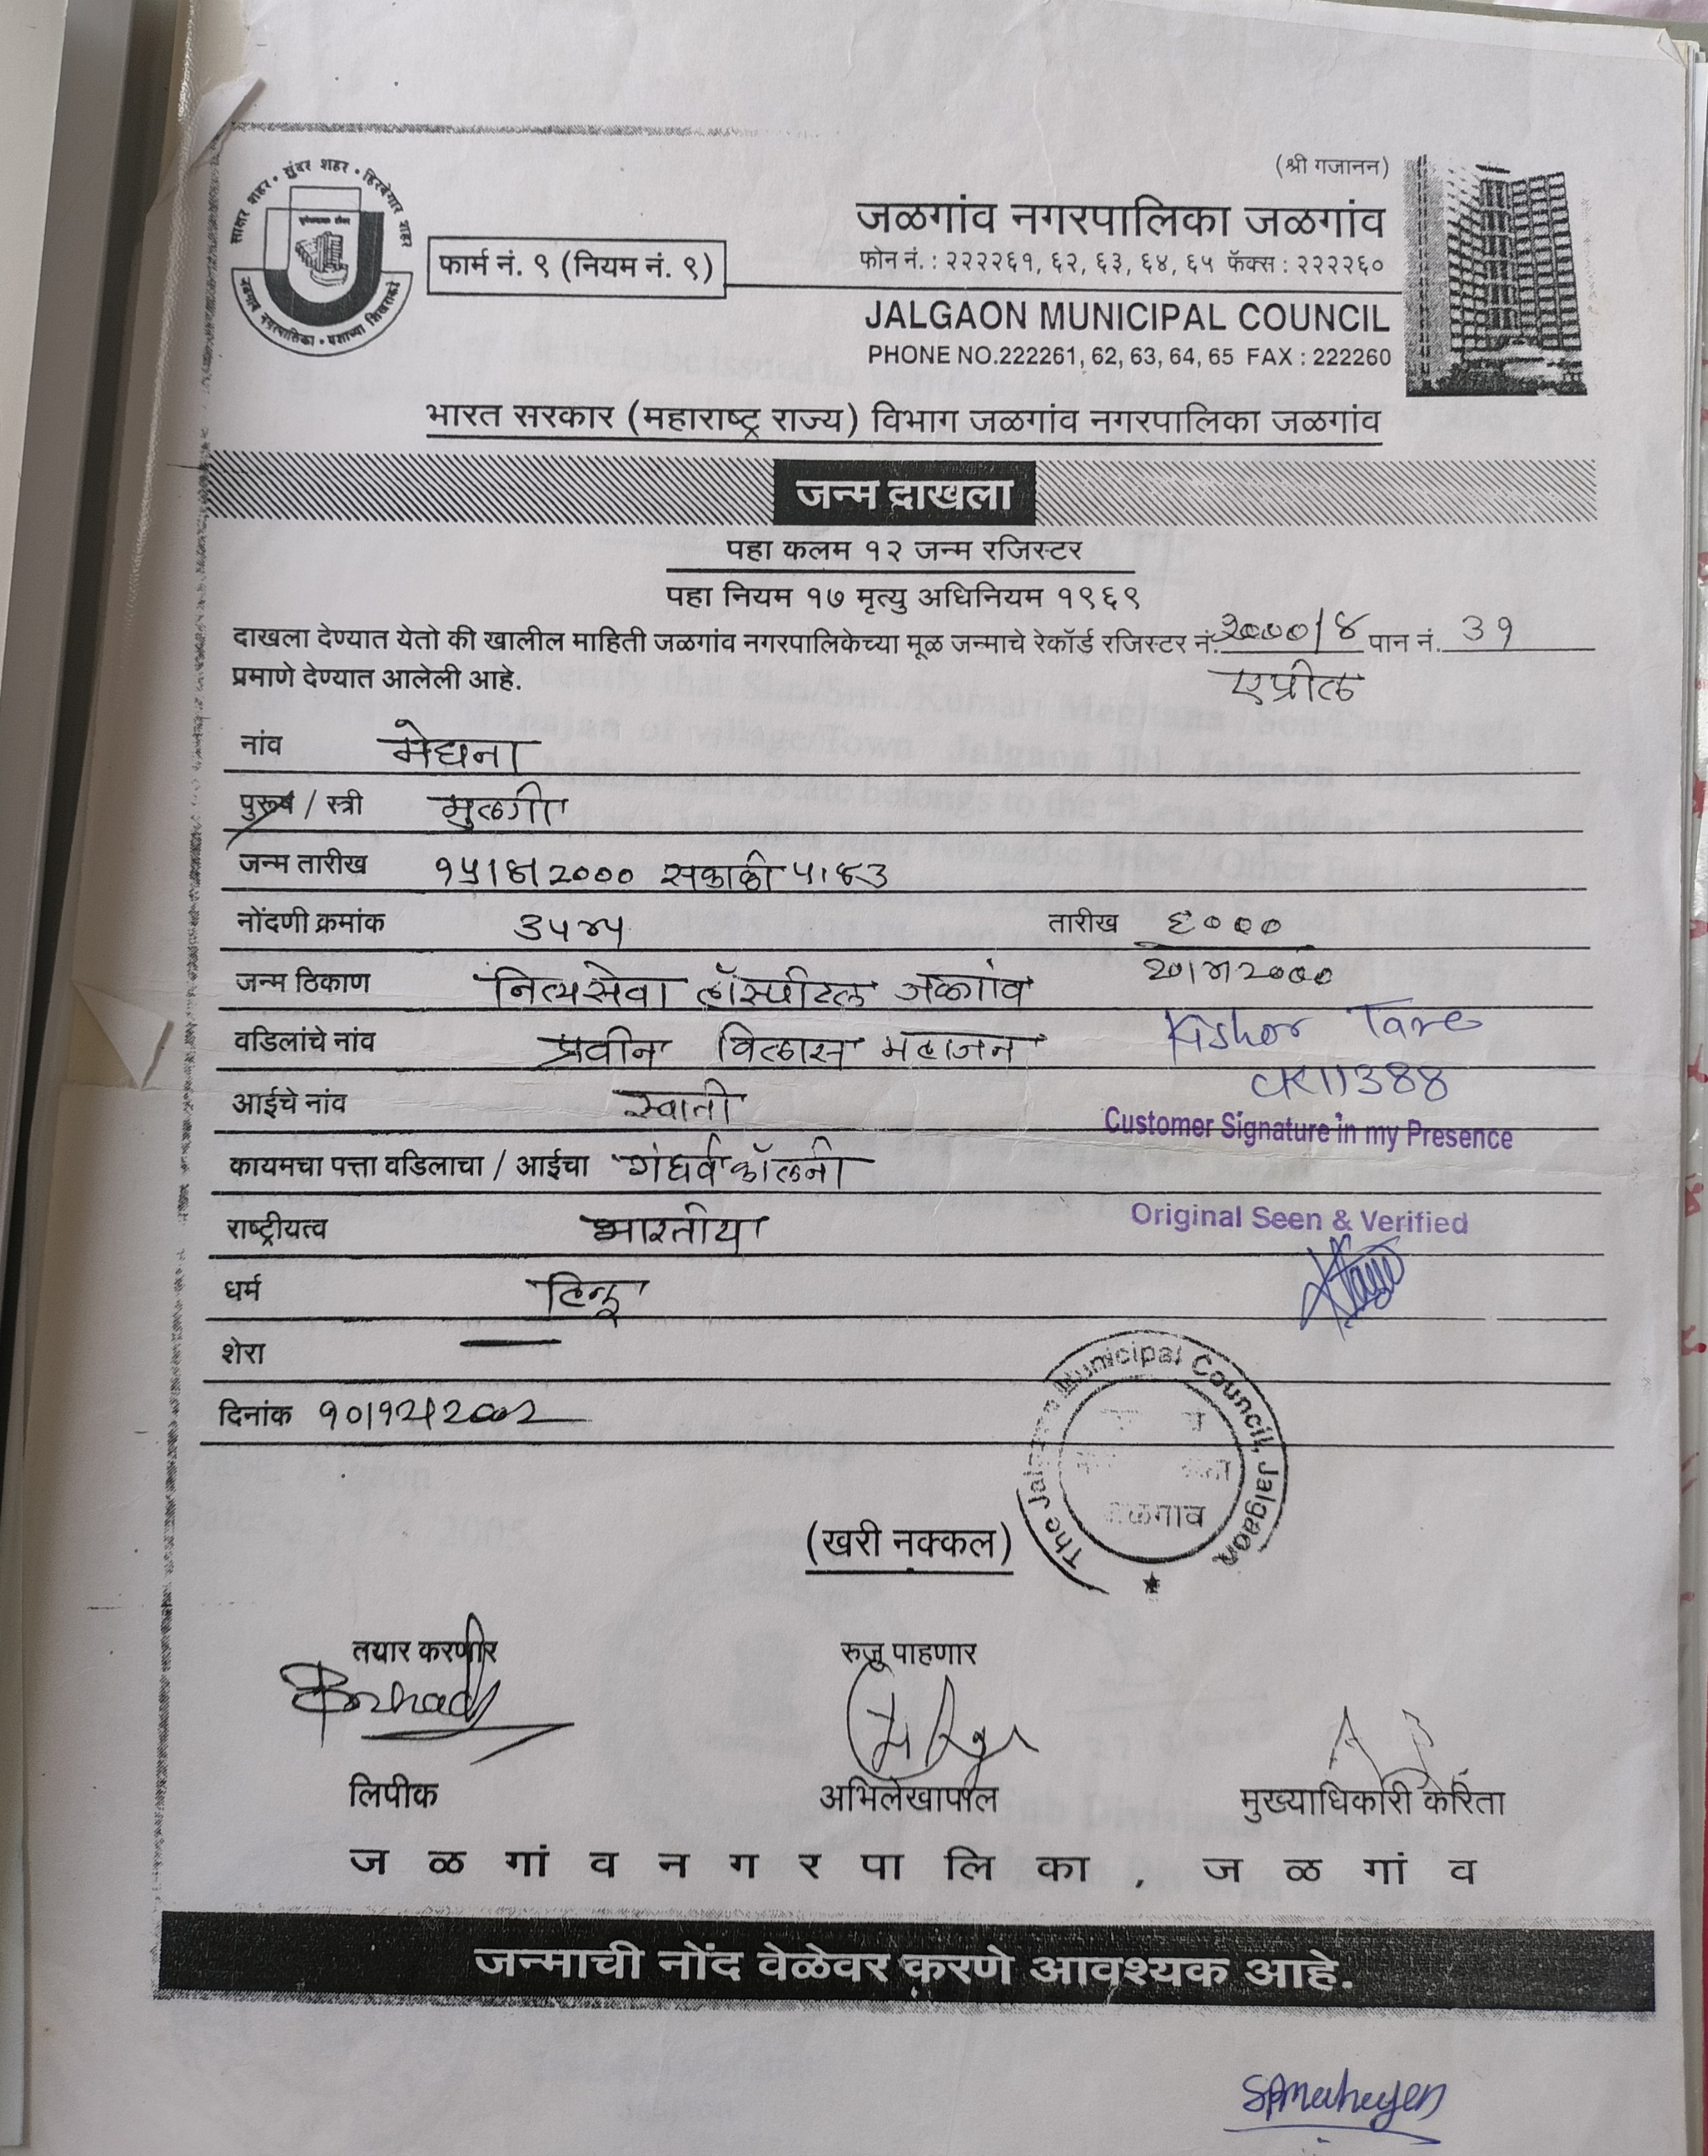 (श्री गजानन)
साक्षर शहर • सुंदर शहर • हिरवेगार शहर
जळगांव नगरपालिका • यशाच्या शिखराकडे
फार्म नं. ९ (नियम नं. ९)
जळगांव नगरपालिका जळगांव
फोन नं. : २२२२६१, ६२, ६३, ६४, ६५ फॅक्स : २२२२६०
JALGAON MUNICIPAL COUNCIL
PHONE NO.222261, 62, 63, 64, 65 FAX : 222260
भारत सरकार (महाराष्ट्र राज्य) विभाग जळगांव नगरपालिका जळगांव
जन्म दाखला
पहा कलम १२ जन्म रजिस्टर
पहा नियम १७ मृत्यु अधिनियम १९६९
दाखला देण्यात येतो की खालील माहिती जळगांव नगरपालिकेच्या मूळ जन्माचे रेकॉर्ड रजिस्टर नं. 2000/४ पान नं. 39
प्रमाणे देण्यात आलेली आहे. एप्रील
नांव मेघना
पुरूष / स्त्री मुलगी
जन्म तारीख १५/४/2000 सकाळी ५।४3
नोंदणी क्रमांक 3५४५ तारीख
जन्म ठिकाण नित्यसेवा हॉस्पीटल जळगांव 20/४/2000
वडिलांचे नांव प्रवीन विलास महाजन Kishor Tare
आईचे नांव स्वाती 11388
Customer Signature in my Presence
कायमचा पत्ता वडिलाचा / आईचा गंधर्व कॉलनी
राष्ट्रीयत्व भारतीय Original Seen & Verified
धर्म हिन्दू
शेरा —
दिनांक १०/१२/2002
The Jalgaon Municipal Council, Jalgaon
जळगाव
(खरी नक्कल)
तयार करणार रुजु पाहणार
लिपीक अभिलेखापाल मुख्याधिकारी करिता
ज ळ गां व न ग र पा लि का , ज ळ गां व
जन्माची नोंद वेळेवर करणे आवश्यक आहे.